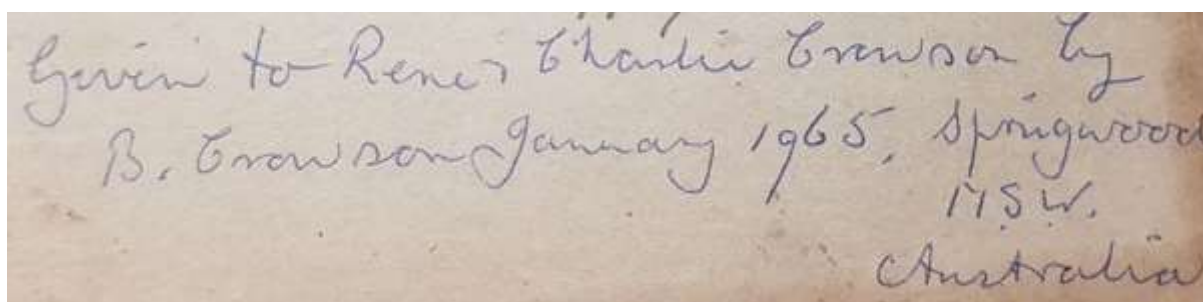 Given to Rene & Charlie Crowson by
B. Crowson January 1965, Springwood
N.S.W.
Australia